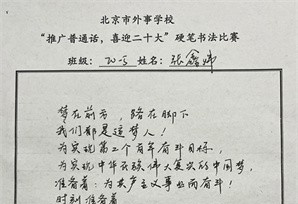 北京市外事学校
“推广普通话，喜迎二十大”硬笔书法比赛
班级： 姓名：张鑫炜
梦在前方，路在脚下
我们都是追梦人！
为实现第二个百年奋斗目标，
为实现中华民族伟大复兴的中国梦，
准备着：为共产主义事业而奋斗！
时刻准备着